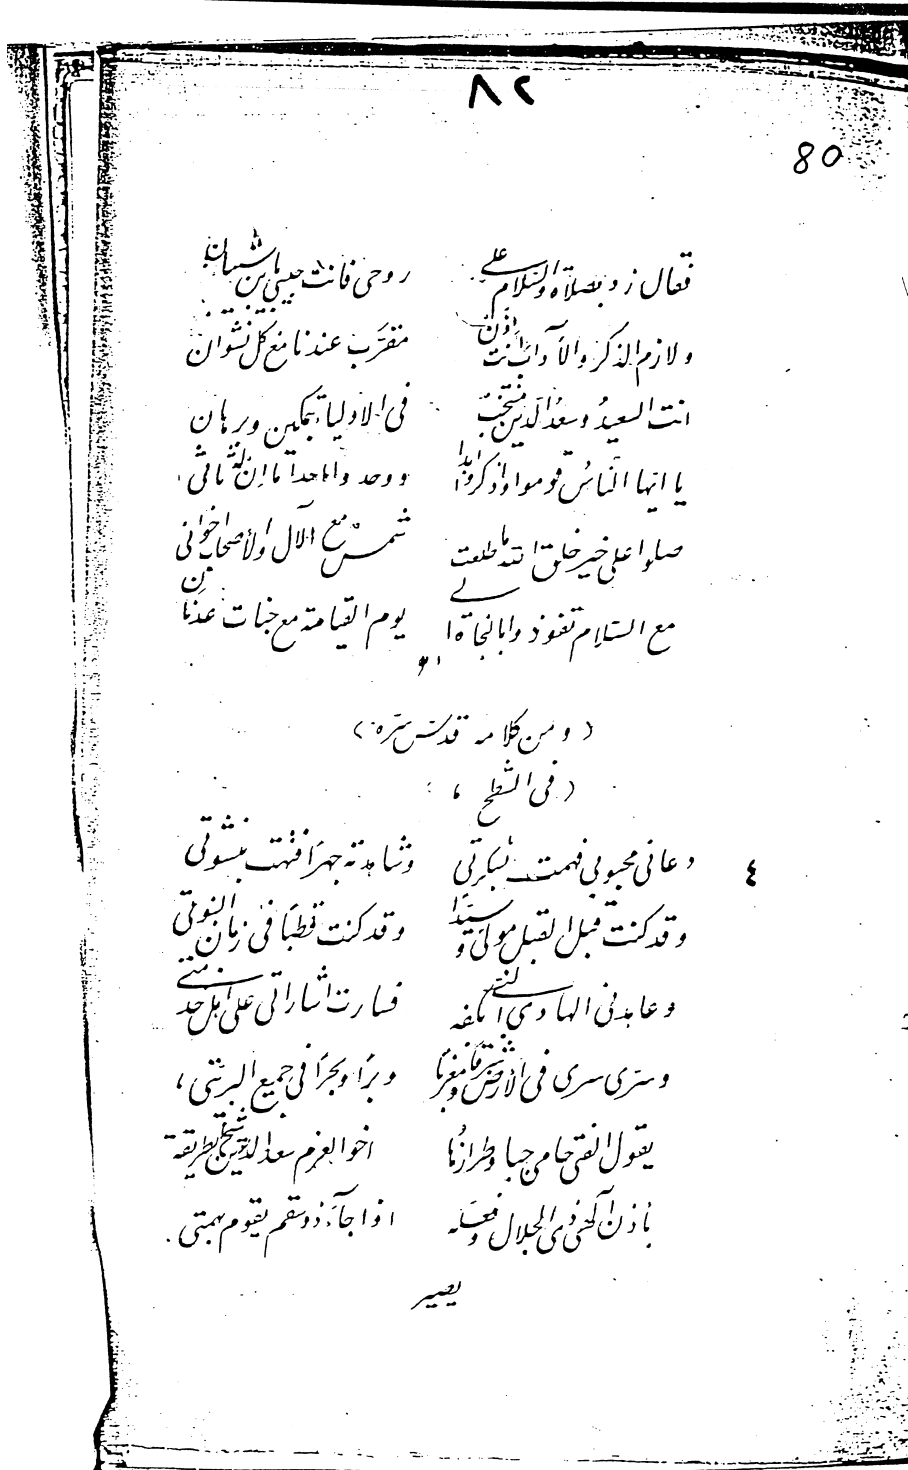 ٨٢
80
فقال زد بصلاة والسلام على روحى فانت حبيبى يا بن شيبان
ولازم الذكر والآداب انت اذن مقرب عندنا مع كل نشوان
انت السعيد وسعد الدين منتخب فى الاولياء بتمكين وبرهان
يا ايها الناس قوموا واذكروا ابدا ووحدوا واحدا ما ان له ثانى
صلوا على خير خلق الله ما طلعت شمس مع الآل والأصحاب اخوانى
مع السلام تفوذوا بالنجاة يوم القيامة مع جنات عدن
(ومن كلامه قدس سره)
(فى الشطح)
٤
دعانى محبوبى فهمت بسكرتى وشاهدته جهرا فتهت بنشوتى
وقد كنت قبل القبل مولى وسيدا وقد كنت قطبا فى زمان النبوتى
وعاهدنى الهادى بكفه فسارت اشاراتى على اهل
وسرى سرى فى الأرض شرقا ومغربا وبرا وبحرا فى جميع البريتى
يقول الفتى حامى جبا وطرازها اخو العزم سعد الدين شيخ الطريقة
باذن آلهى ذى الجلال وفضله اذا جآء ذو سقم يقوم بهمتى
يصير